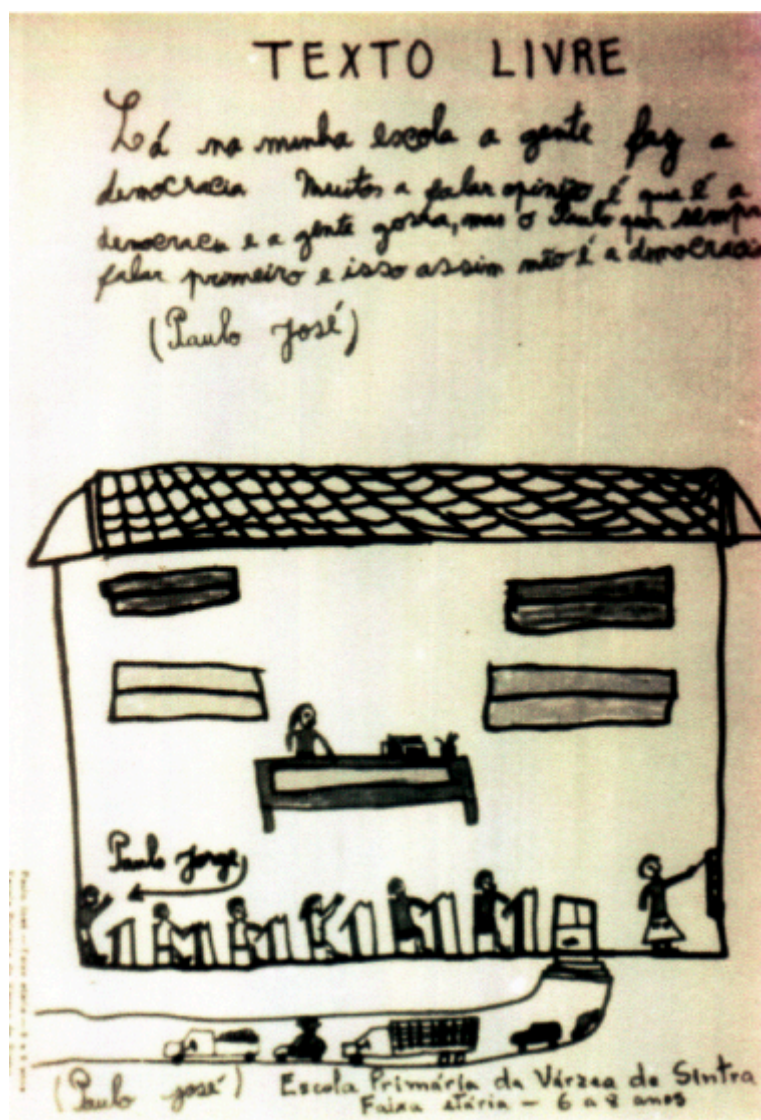 TEXTO LIVRE
Lá na minha escola a gente faz a
democracia Muitos a falar opinião é que é a
democracia e a gente gosta, mas o Paulo quer sempre
falar promeiro e isso assim não é a democracia
(Paulo José)
Paulo Jorge
(Paulo José) Escola Primária da Várzea de Sintra
Faixa etária - 6 a 8 anos